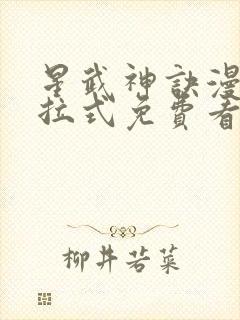 星武神訣漫
拉式免費看
柳井若菜